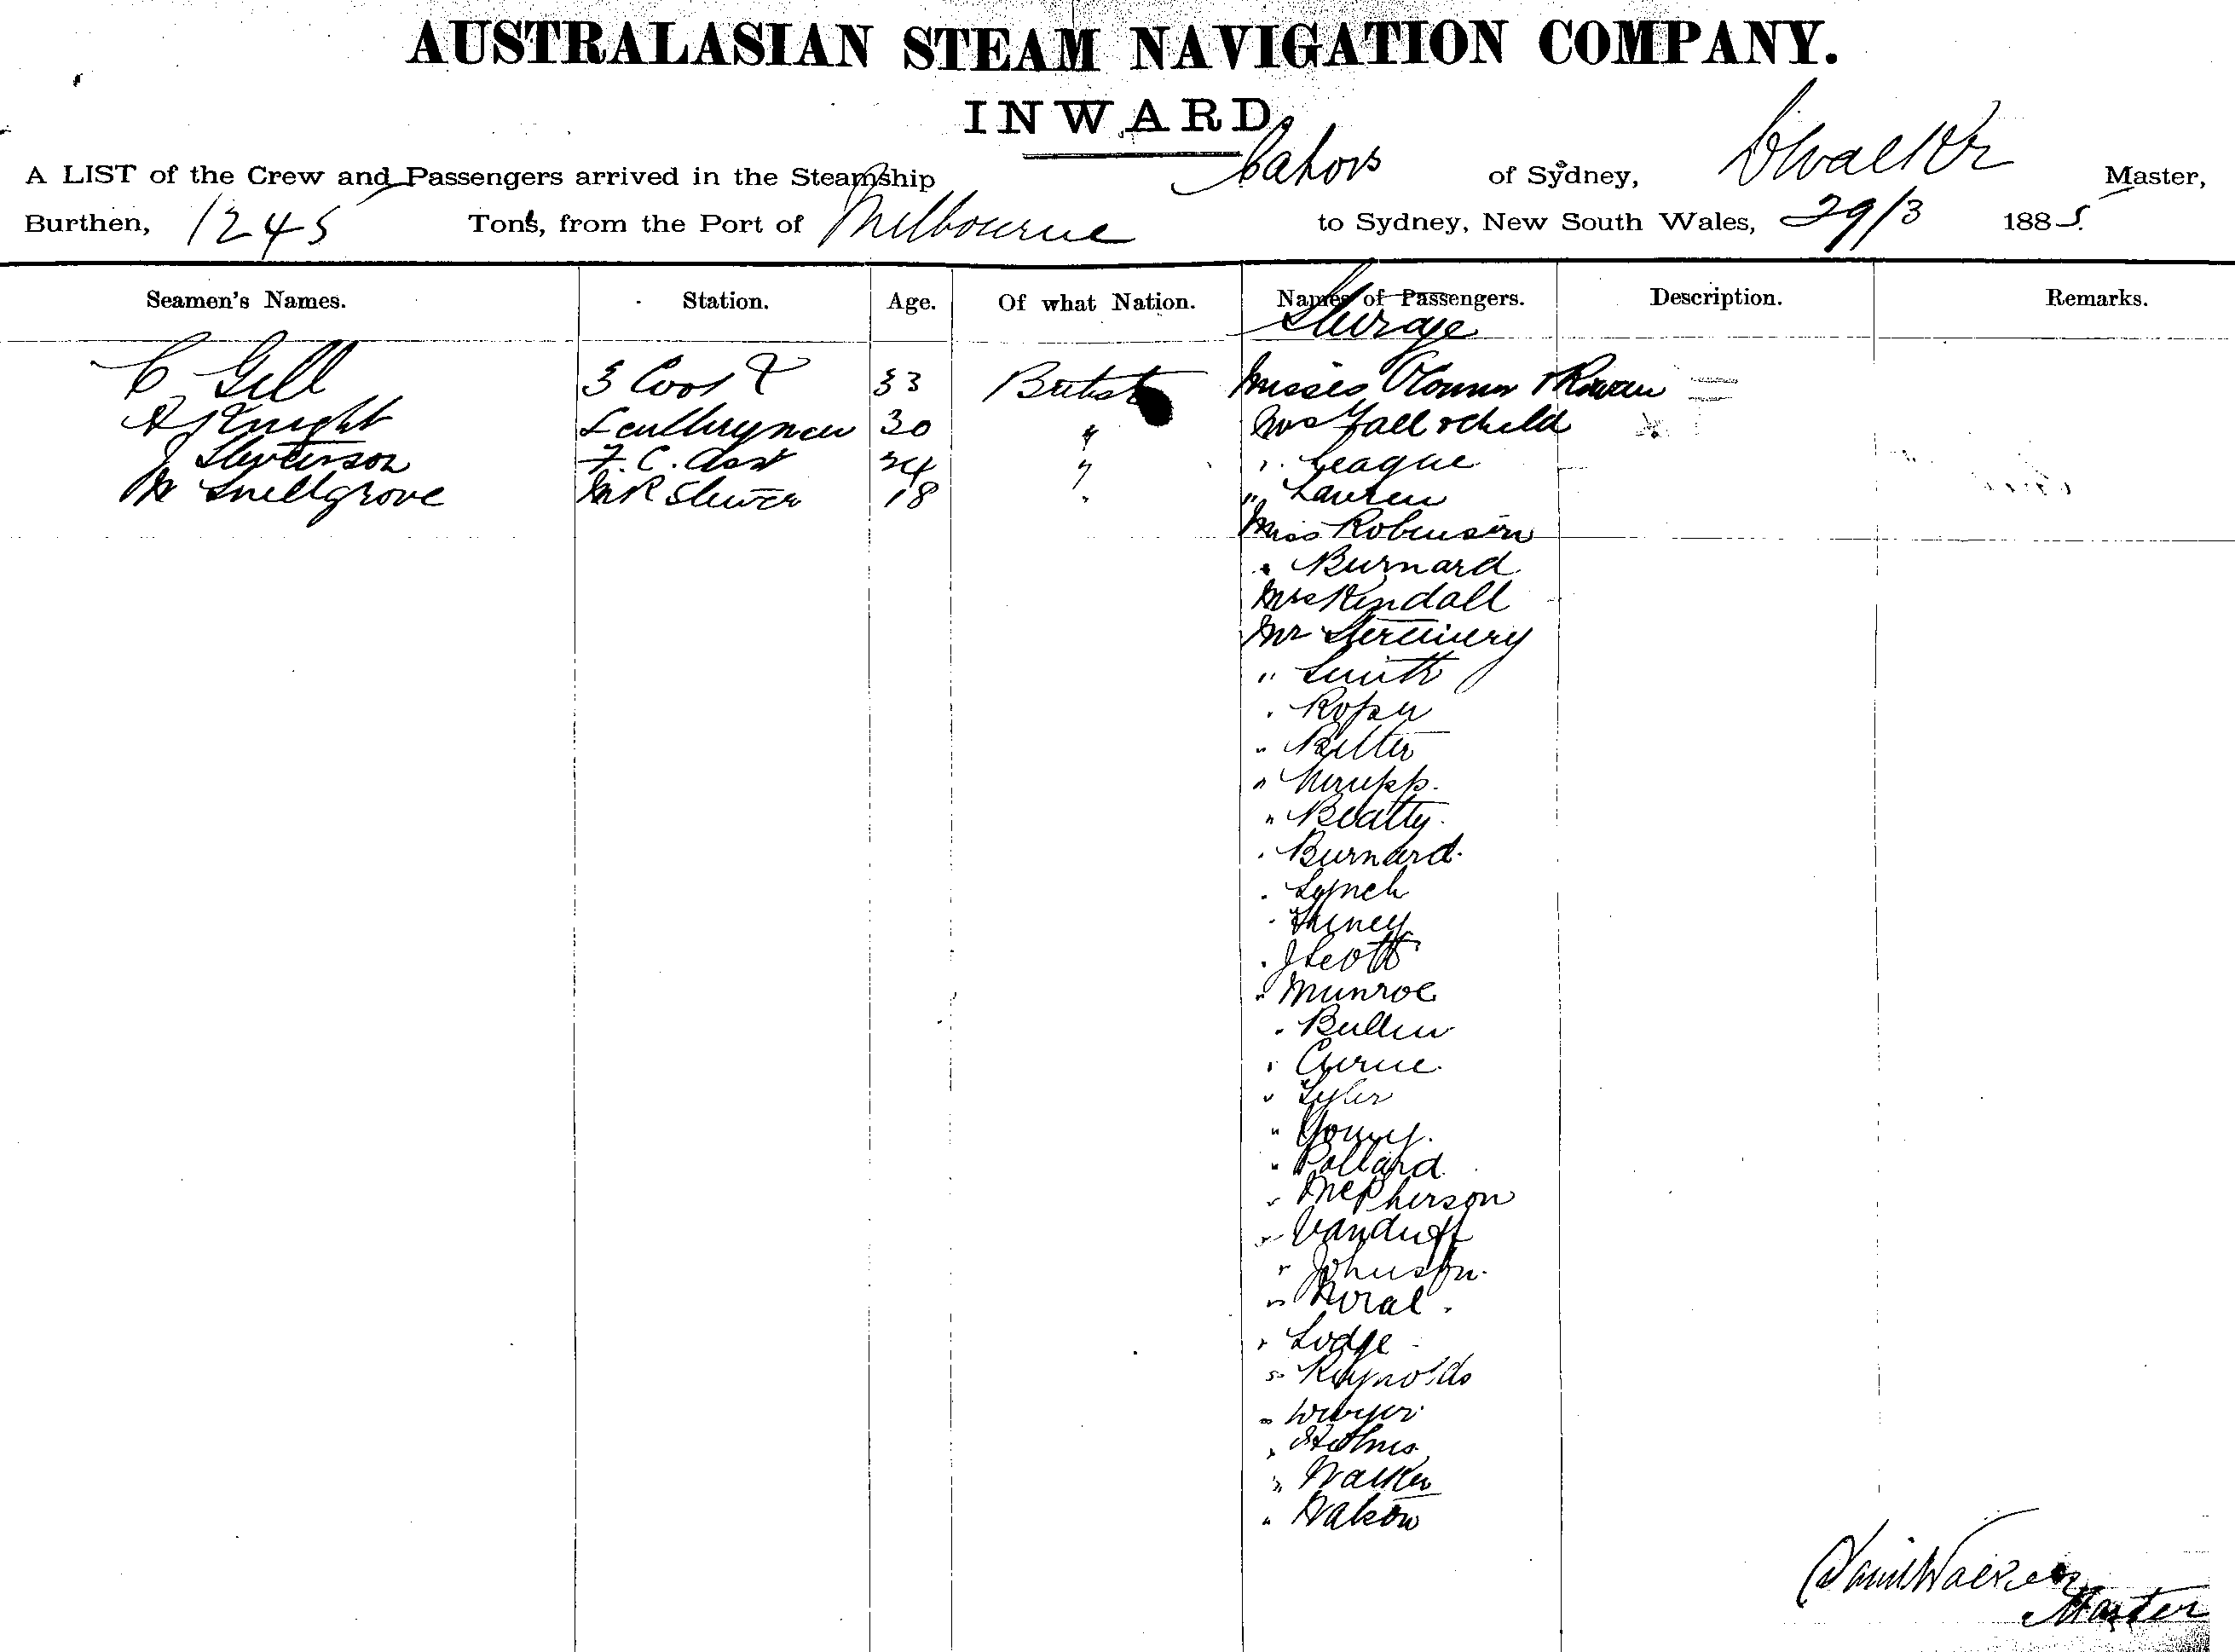 AUSTRALASIAN STEAM NAVIGATION COMPANY.
INWARD.
A LIST of the Crew and Passengers arrived in the Steamship Cahors of Sydney, D Walker Master,
Burthen, 1245 Tons, from the Port of Melbourne to Sydney, New South Wales, 29/3 1885.
Seamen's Names. Station. Age. Of what Nation. Names of Passengers. Description. Remarks.
Steerage
C Gill 3 Cook 33 British Misses OConnor & Rowan
A Knight Sculleryman 30 " Mrs Hall & Child
J Stevenson F. C. Asst 24 " " League
W Snellgrove M R Stewer 18 " " Lawren
Miss Robinson
" Burnard
Mrs Kendall
Mr
" Smith
" Roper
" Ritter
" Krupp.
" Beatty.
" Burnard.
" Lynch
"
" J Scott
" Munroe
" Bullen
" Currie.
" Tyler
" Young.
" Pollard
" McPherson
" Vanduff
" Johnston.
"
" Lodge
" Reynolds
"
" Holmes
" Walker
" Watson
David Walker
Master